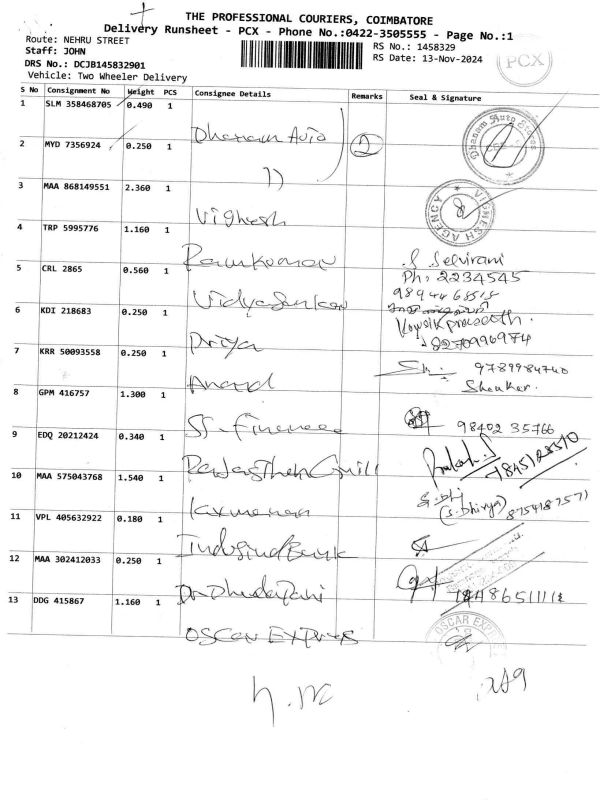 THE PROFESSIONAL COURIERS, COIMBATORE
Delivery Runsheet - PCX - Phone No.:0422-3505555 - Page No.:1
Route: NEHRU STREET
Staff: JOHN
DRS No.: DCJB145832901
Vehicle: Two Wheeler Delivery
RS No.: 1458329
RS Date: 13-Nov-2024
PCX
S No Consignment No Weight PCS Consignee Details Remarks Seal & Signature
1 SLM 358468705 0.490 1 Dhanam Auto
Dhanam Auto Stores
2 MYD 7356924 0.250 1 11 2
3 MAA 868149551 2.360 1 Vighesh
VIGNESH AGENCY
4 TRP 5995776 1.160 1 Ramkumar S. Selvirani
Ph: 2234545
5 CRL 2865 0.560 1 Vidyasankar
9894468515
6 KDI 218683 0.250 1 Priya
8270996974
7 KRR 50093558 0.250 1 Anand 9789984740
Shankar.
8 GPM 416757 1.300 1 SS-Finance 98402 35766
9 EDQ 20212424 0.340 1 Rajasthan Grill
10 MAA 575043768 1.540 1 Laxmanan
(S. Dhivya) 8754187571
11 VPL 405632922 0.180 1 Indusind Bank
12 MAA 302412033 0.250 1 Dr Dhudapani
13 DDG 415867 1.160 1 OSCar EXPres
OSCAR EXPRE